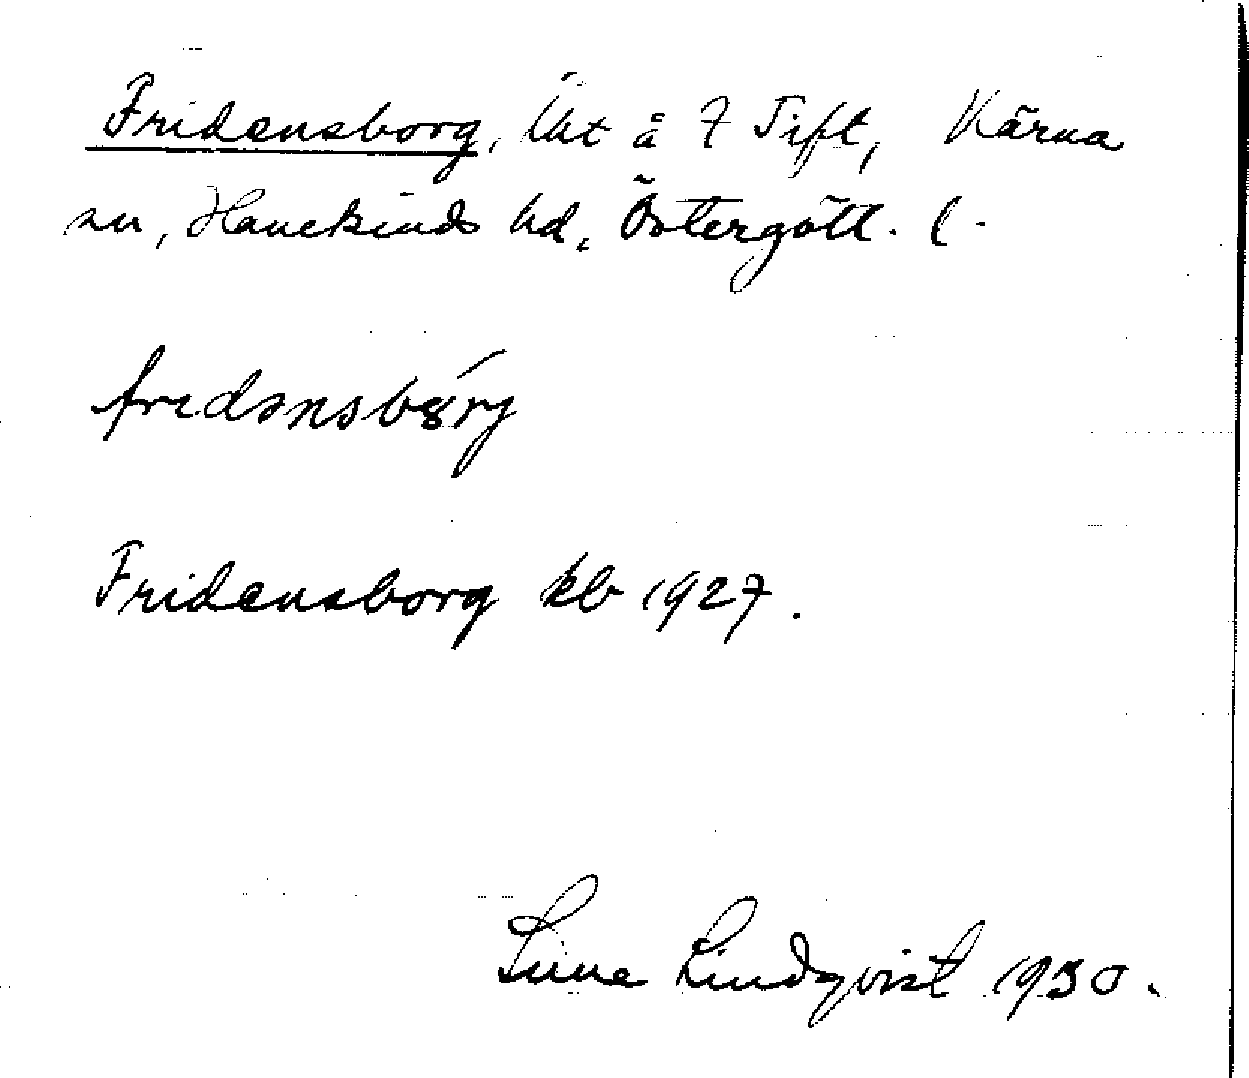 Fridensborg, lht å 7 Tift, Kärna
sn, Hanekinds hd, Östergötl. l.
Fridensborg kb 1927.
Sune Lindqvist 1930.